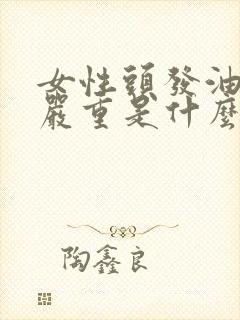 女性頭發油
嚴重是什麼
陶鑫良